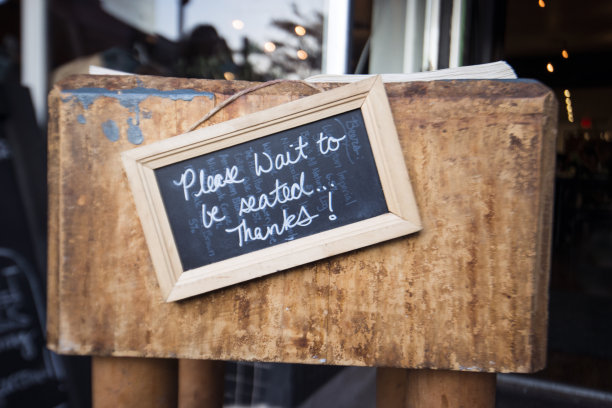 Please Wait to
be seated...
Thanks!
Beers: